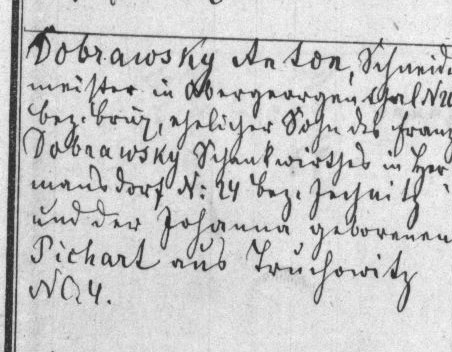 Dobrawsky Anton, Schneid
meister in Obergeorgenthal N
bez. Brüx, ehelicher Sohn des Franz
Dobrawsky Schankwirthes in Her
mansdorf N: 24 bez. Jechnitz
und der Johanna geborenen
Pichart aus Truchowitz
NC 4.